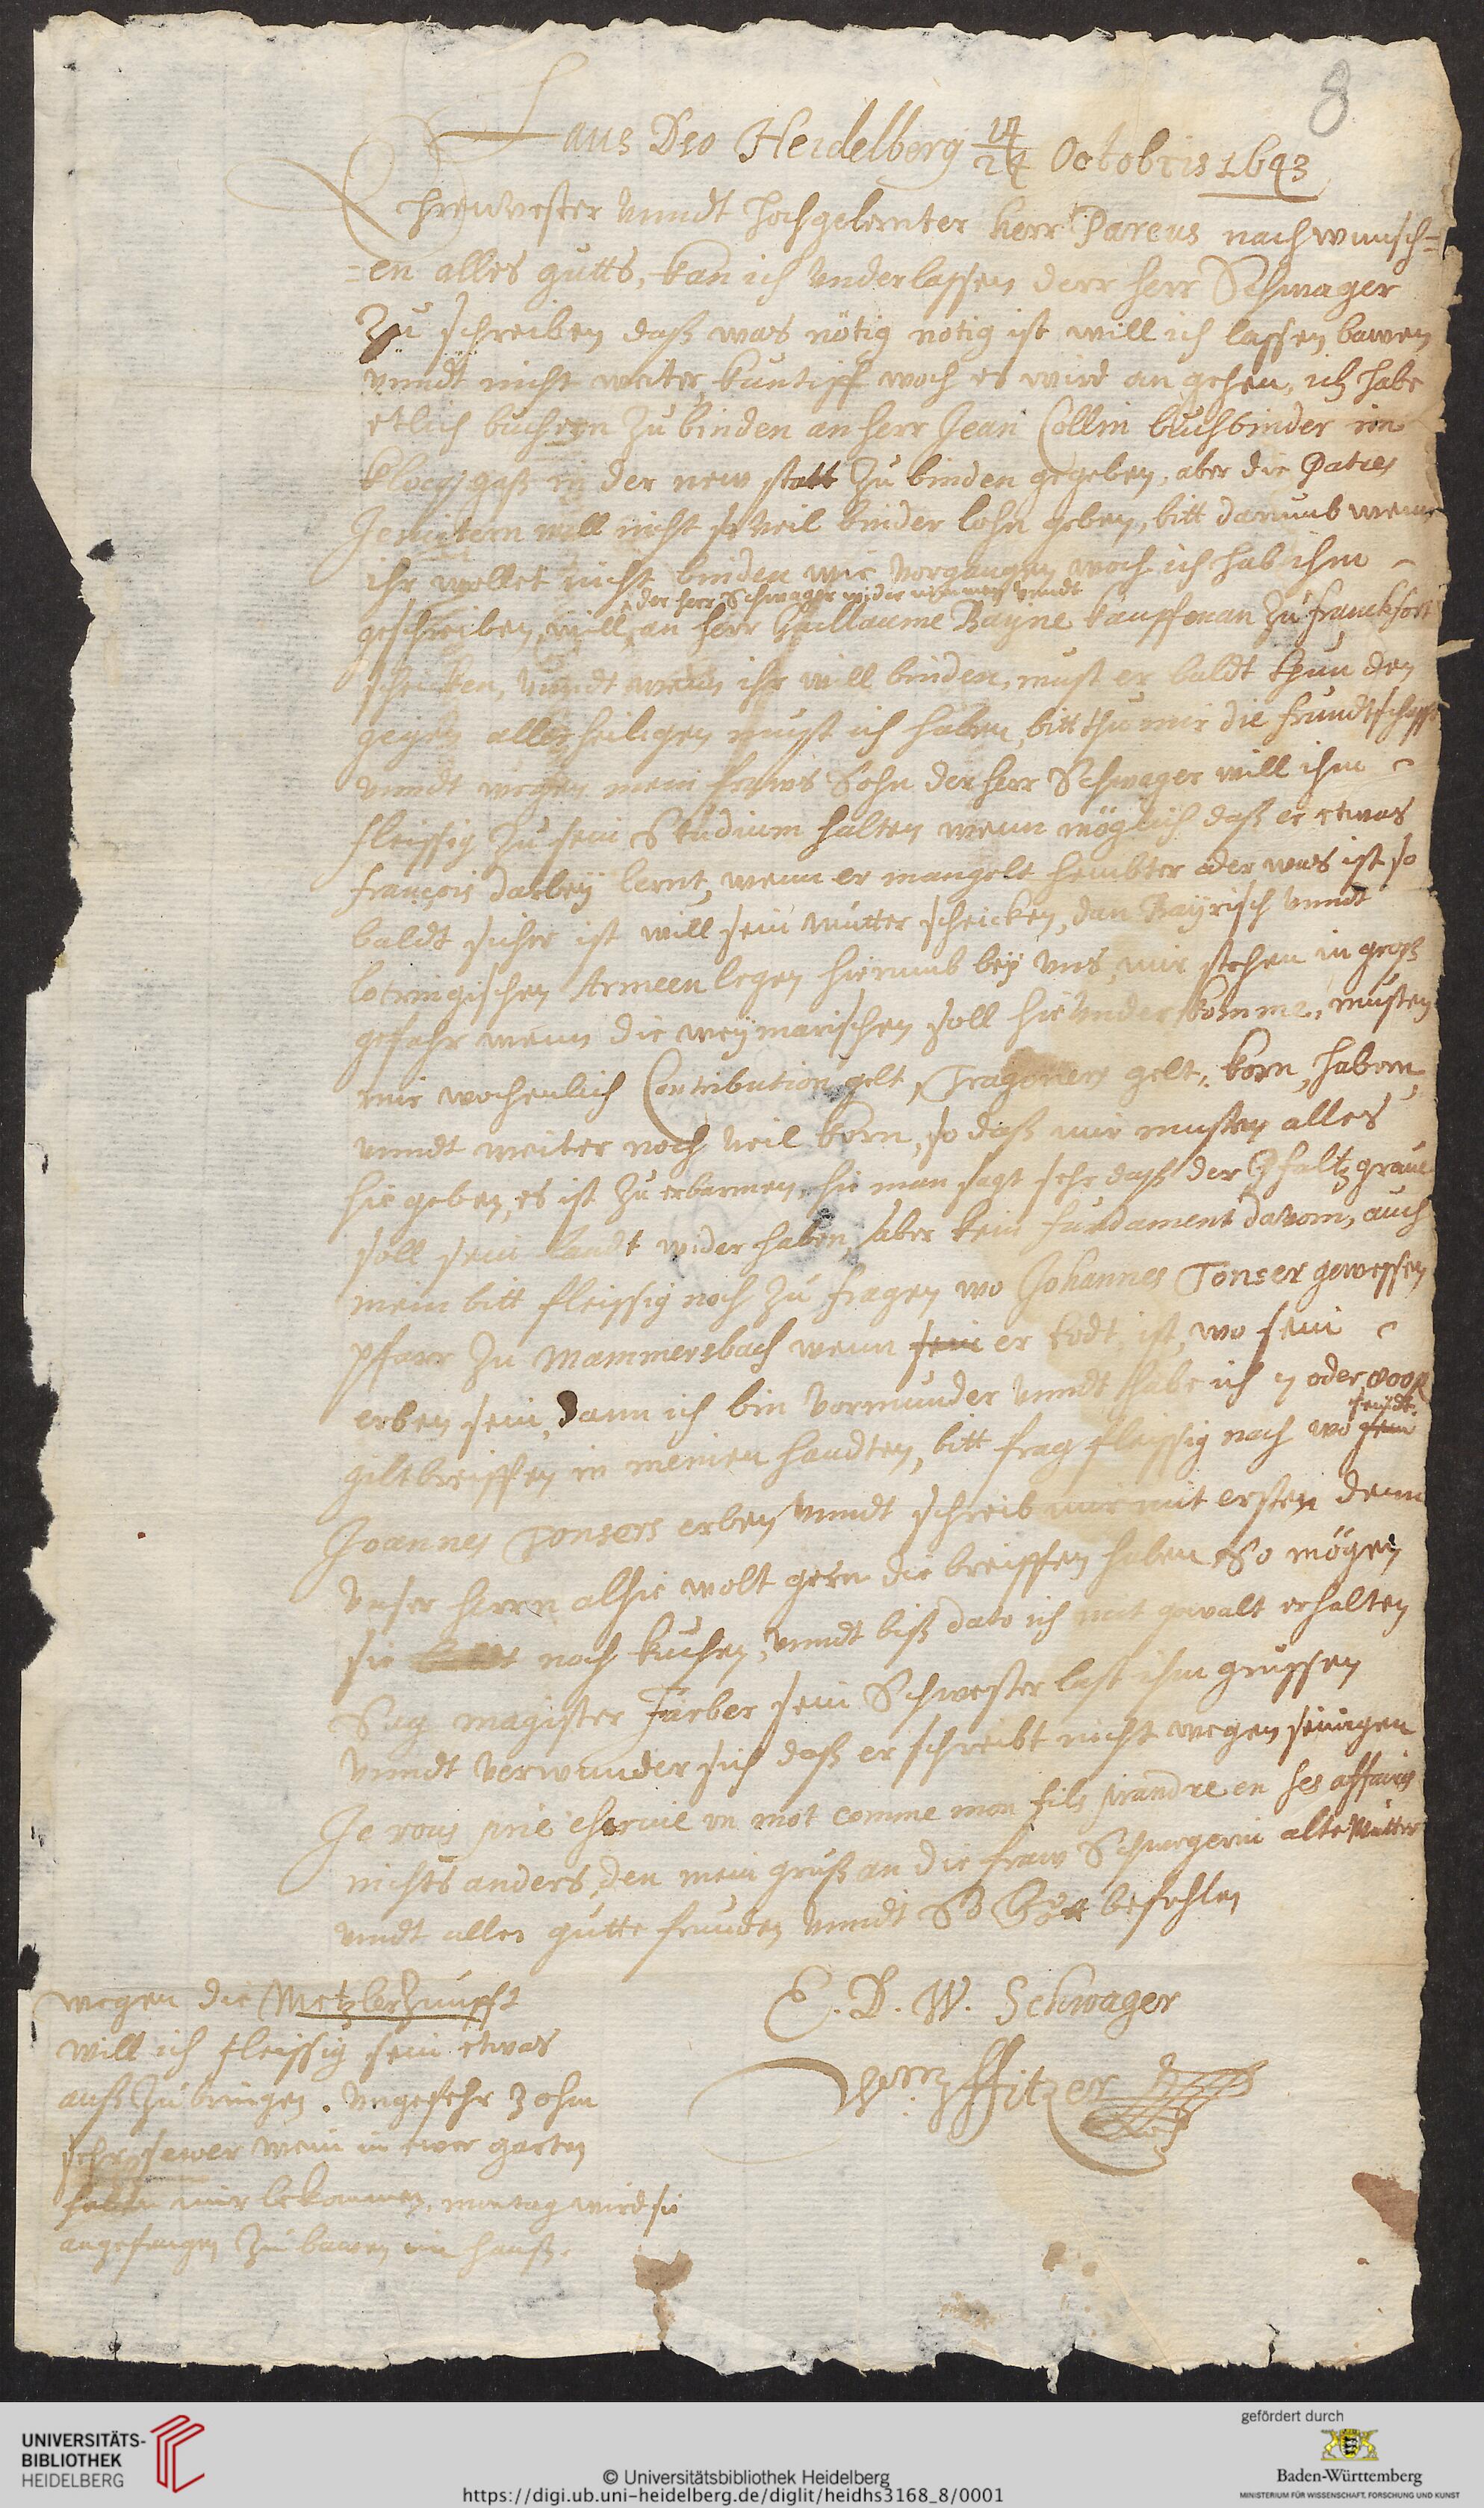 8
Laus Deo Heidelberg 14/24 Octobris 1643
Ehrenvester vnndt hochgelernter herr Pareus nach wunsch=
=en alles gutts, kan ich vnderlassen derr herr Schwager
Zu schreiben daß was nötig notig ist will ich lassen bawen
vnndt nicht weiter, kuntiff woch es wird an gehen, ich habe
etlich buchern zu binden an herr Jean Collin buchbinder inn
gaß in der new statt zu binden gegeben, aber die Patres
Jesuitern will nicht so veil binder lohn geben, bitt darumb wenn
ihr wellet nicht binden wie vorgangen woch ich hab ihm
der herr Schwager wider nemmen vnndt
geschrieben, will an herr Guillaume Bayne kauffman zu franckfort
schicken, vnndt wenn ihr will binden, must er baldt thun den
gegen allerheiligen must ich haben, bitt thu mir die frundtschafft
vnndt wegen mein fraws Sohn der herr Schwager will ihm
fleissig zu sein Studium halten wenn möglich daß er etwas
françois darbey lernt, wenn er mangelt hembter oder was ist so
baldt sicher ist will sein mutter schicken, dan Bayrisch vnndt
lotringischen Armeen legen hierumb bey vns, mir stehen in groß
gefahr wenn die weymarischen soll hie vnder komme, musten
mir wochenlich Contribution gelt, Tragoners gelt, korn, habern,
vnndt weiter noch veil korn, so daß mir musten alles
hie geben, es ist zu erbarmen, hie man sagt sehr daß der Pfaltzgraue
soll sein landt wider haben, aber kein fundament davom, auch
mein bitt fleissig noch zu fragen wo Johannes Tonser gewessen
pfarr zu Mammersbach wenn sein er todt ist, wo sein
erben sein, dann ich bin vormunder vnndt habe ich oder
giltbreiffen in meinen handten, bitt frag fleissig nach wo sein seindt
Joannes Tonsers erben vnndt schreib mir mit ersten denn
vnser herrn alhie wolt gern die breiffen haben So mögen
sie noch suchen, vnndt biß dato ich mit gewalt erhalten
Sag magister Färber sein Schwester last ihm grussen
vnndt verwunder sich daß er schreibt nicht wegen seinigen
Je vous prie un mot comme mon fils prandre en ses affaires
nichts anders, den mein gruß an die fraw Schwegerin alte Mutter
vndt alles gutte frunden vnndt Gott befohlen
E. D. W. Schwager
Wm Fitzer
wegen die Metzlerzunfft
will ich fleissig sein etwas
auß zu bringen. vngefehr 3 ohm
sehr sawer wein in ewer garten
haben mir bekommen, montag wird sie
angefangen zu bawen im hauß.
UNIVERSITÄTS-
BIBLIOTHEK
HEIDELBERG
© Universitätsbibliothek Heidelberg
https://digi.ub.uni-heidelberg.de/diglit/heidhs3168_8/0001
gefördert durch
Baden-Württemberg
MINISTERIUM FÜR WISSENSCHAFT, FORSCHUNG UND KUNST